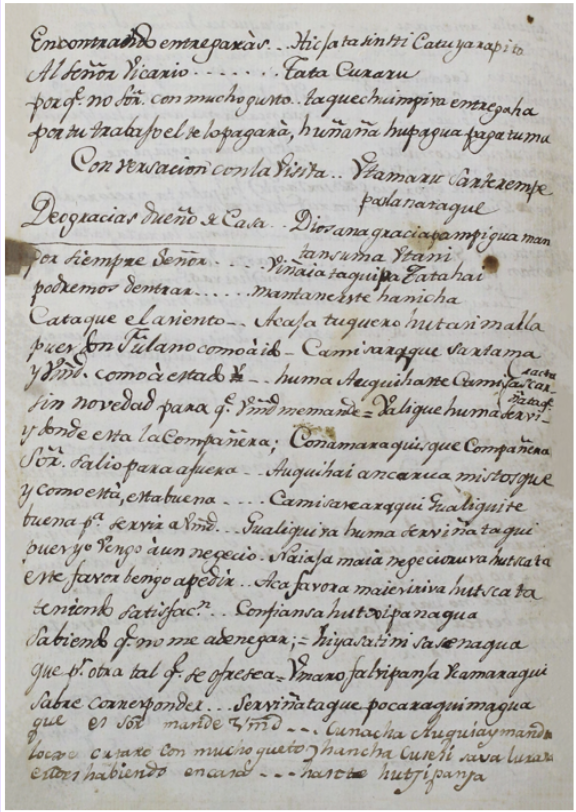 Encontrando entregaràs.. Hicsatasinsti Catuyarapita
Al Señor Vicario ...... Tata Curaru
por q.e no Sōr. con mucho gusto.. taquechuimpiva entregaha
por tu trabajo el te lo pagarà, huñaña hupagua pagatuma
Conversacion con la Visita.. Vtamaru Sarterempe
parlanaraque
Deogracias dueño de Casa.. Diosana graciapampiguaman
tansuma Vtani
por siempre Señor.... Viñaiataquipa Tatahai
podremos dentrar...... mantaneriste hanicha
Cataque el asiento-- Acasa tuquero hutasimalla
pues Don Fulano como à ido- Camisaraque Sartama
y Vmd. como à estado -- huma Auquiharte Camisascar-
sin novedad para q.e Vmd me mande = Valique huma servi-
y donde esta la Compañera; Conamaraquisque Compañera
Sōr. salio para afuera -- Auquihai ancarua mistosque
y como està, esta buena .... Camisarearaqui Gualiquite
buena p.a servir a Vmd... Gualiquisa huma Serviñataqui
pues yo Vengo à un negocio. Naiasa maia negocionuva hutscata
este favor bengo a pedir.. Aca favora maieviriva hutscata
teniendo satisfac.n.. Confiansa hutxipanagua
Sabiendo q.e no me a de negar; = hiyasatini sasenagua
que p.r otra tal q.e se ofresca = Vmaro falsipansa Vcamaraqui
sabre corresponder... Serviñataque pocaraquimagua
que es Sōr mande Vmd --- Cunacha Auquiay manda
con mucho gusto hancha Cuseki sava lurara
habiendo encasa --- harste hutjipansa